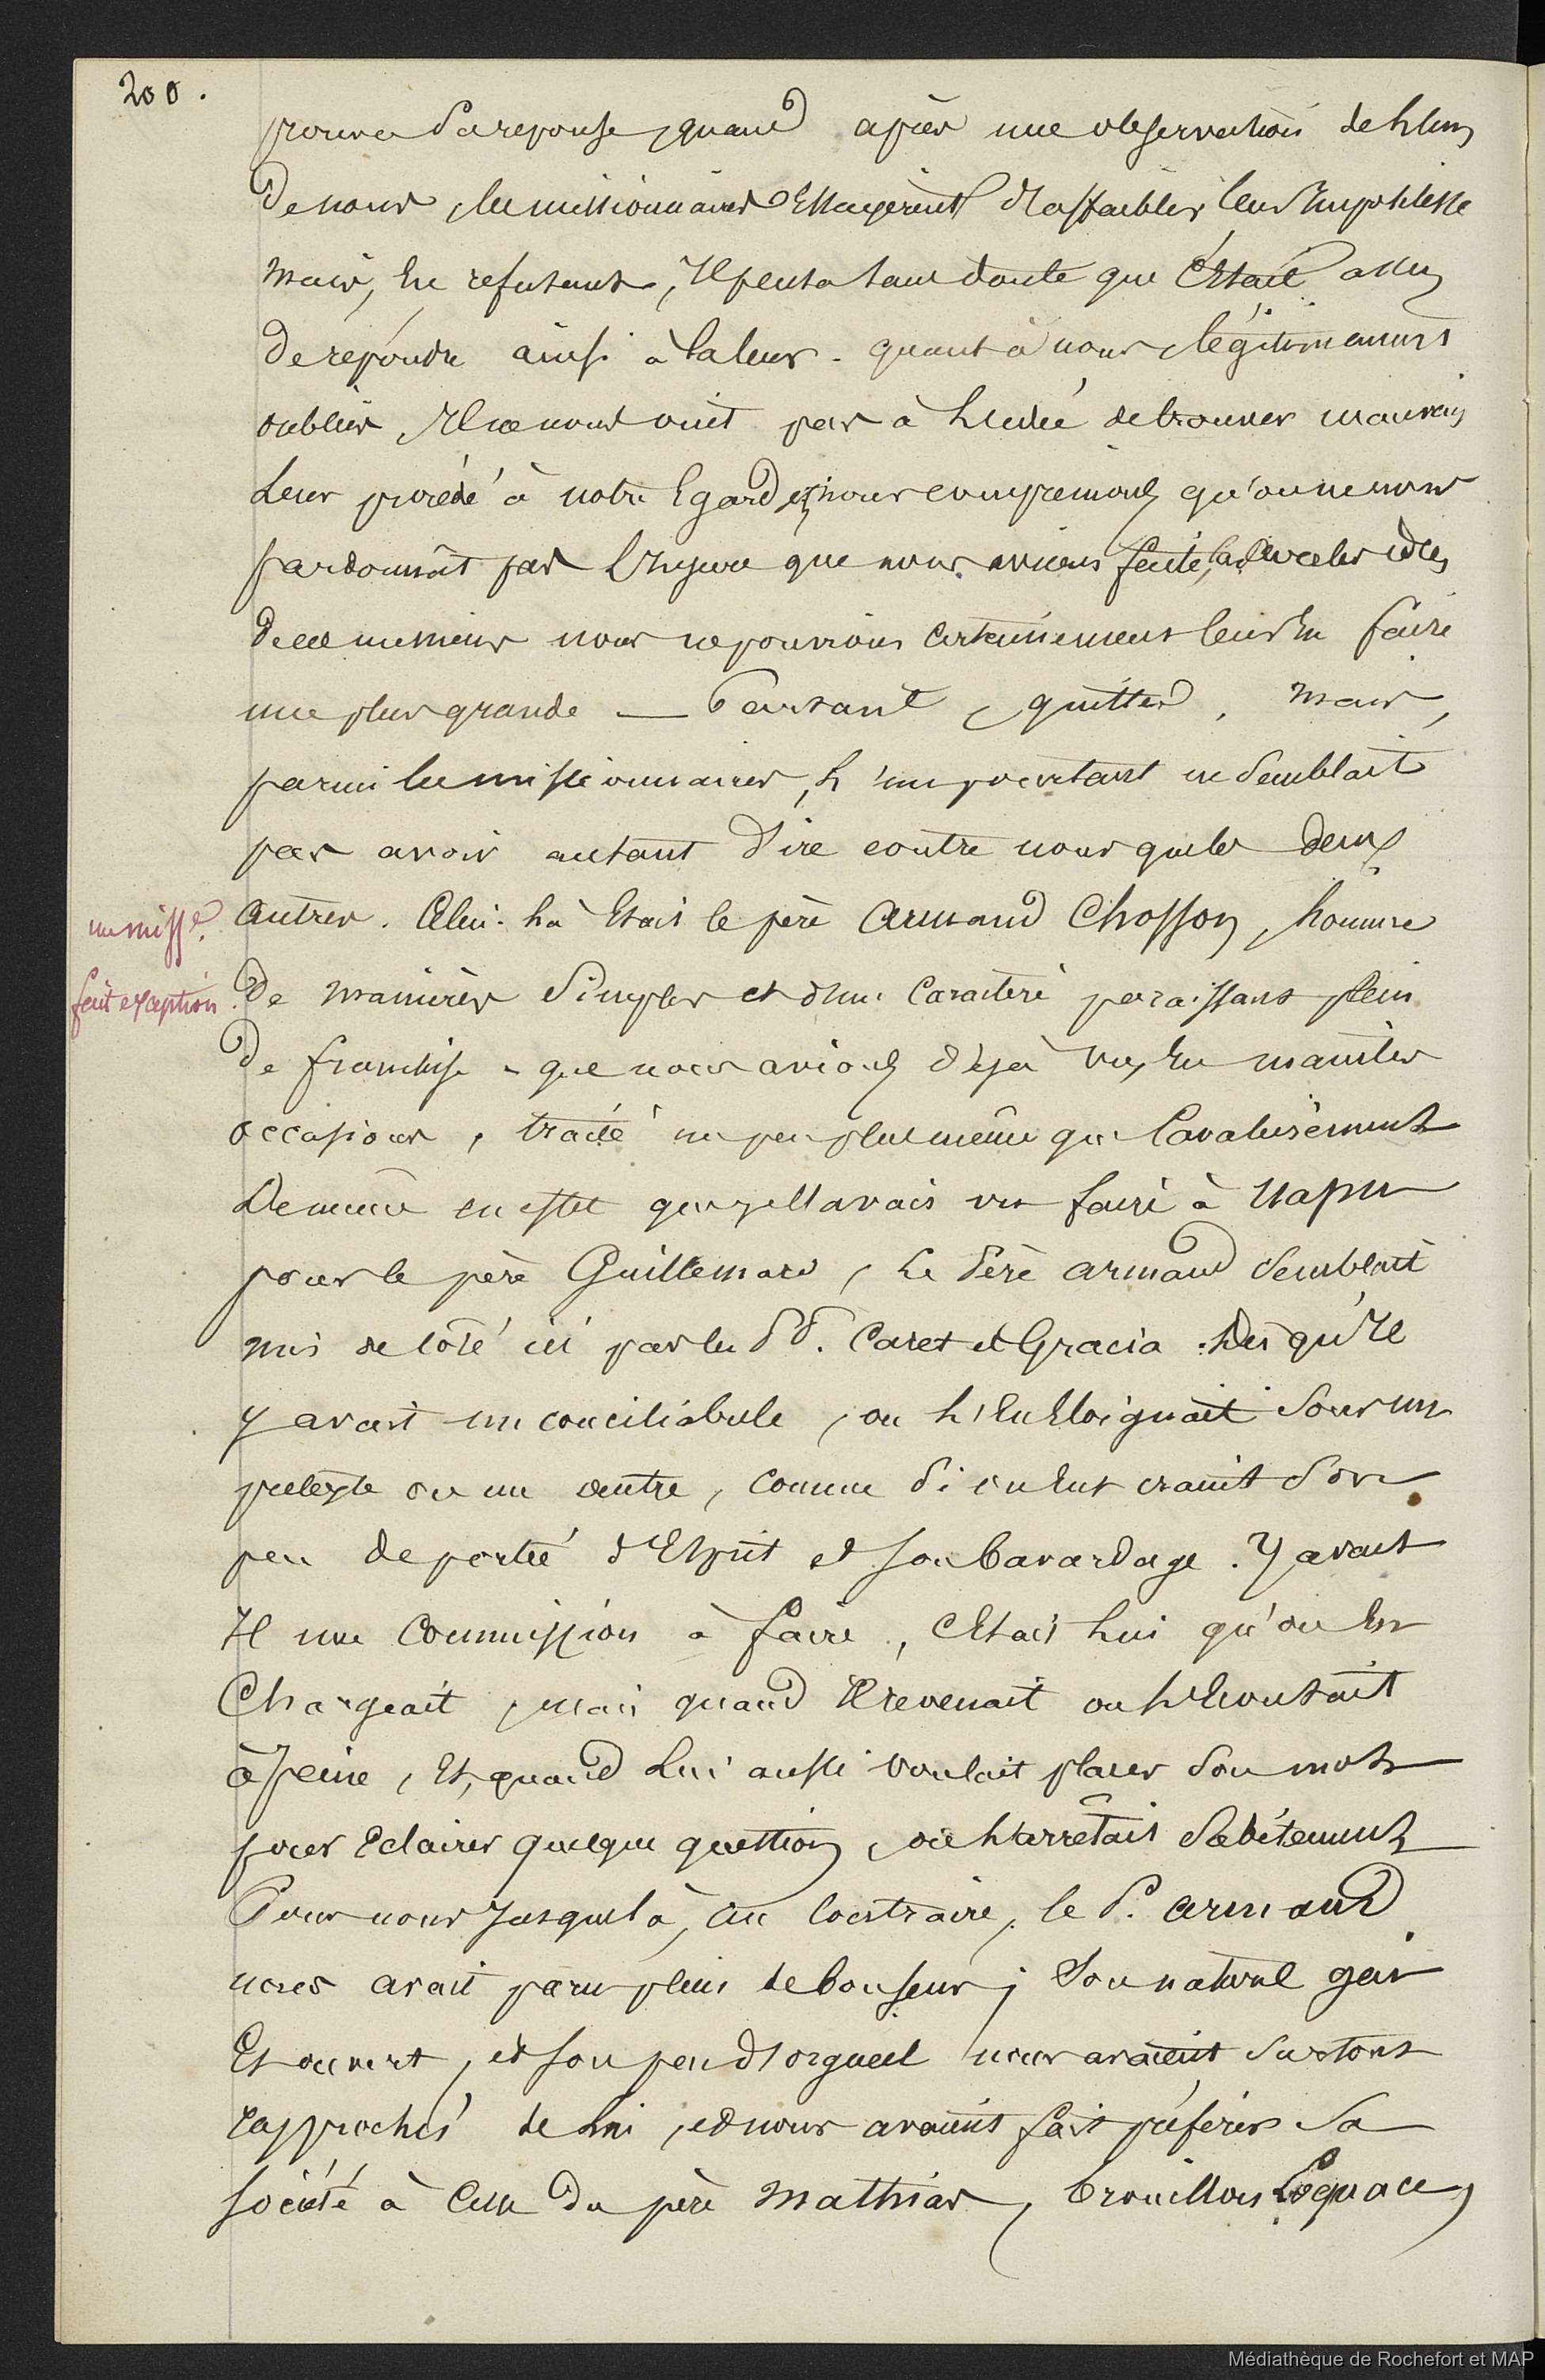 200.
prouva sa reponse, quand après une observation de l'un
de nous, les missionnaires Essayèrent d'affaiblir leur Impolitesse
mais, En refusant, Il pensa sans doute que c'était assez
de répondre ainsi à la leur. quant à nous, légitimement
oubliés, Il ne nous vint pas à L'idée de trouver mauvais
Leur procédé à notre Egard, et nous comprenions qu'on ne nous
pardonnât pas L'Injure que nous avions faite, avec les idées
de ces messieurs nous ne pouvions certainement leur En faire
une plus grande — Partant, quittes, mais,
parmi les missionnaires, L'un pourtant ne semblait
pas avoir autant d'ire contre nous que les deux
autres. Celui-Là Etait le père Armand Chosson, homme
un miss.re
fait exception.
de manières simples et d'un Caractère paraissant plein
de franchise - que nous avions déjà vu, En maintes
occasions, traité un peu plus même que Cavalièrement
De même en effet que je l'avais vu faire à Uapou
pour le père Guillemard, Le Père Armand semblait
mis de côté ici par les P P. Caret et Gracia. Dès qu'Il
y avait un conciliabule, on L'En Eloignait sous un
prétexte ou un autre, comme si on Eut craint son
peu de portée d'Esprit et son bavardage. Y avait
Il une Commission à faire, c'Etait Lui qu'on En
Chargeait, mais quand Il revenait on L'Ecoutait
à peine, Et, quand Lui aussi voulait placer son mot
pour Eclairer quelque question, on L'arrêtait subitement
Pour nous Jusque là, au Contraire, le P. Armand
nous avait paru plein de bon sens; son naturel gai
Et ouvert, et son peu d'orgueil nous avaient surtout
rapprochés de Lui, et nous avaient fait préférer sa
société à Celle du père Mathias, brouillon Loquace,
Médiathèque de Rochefort et MAP